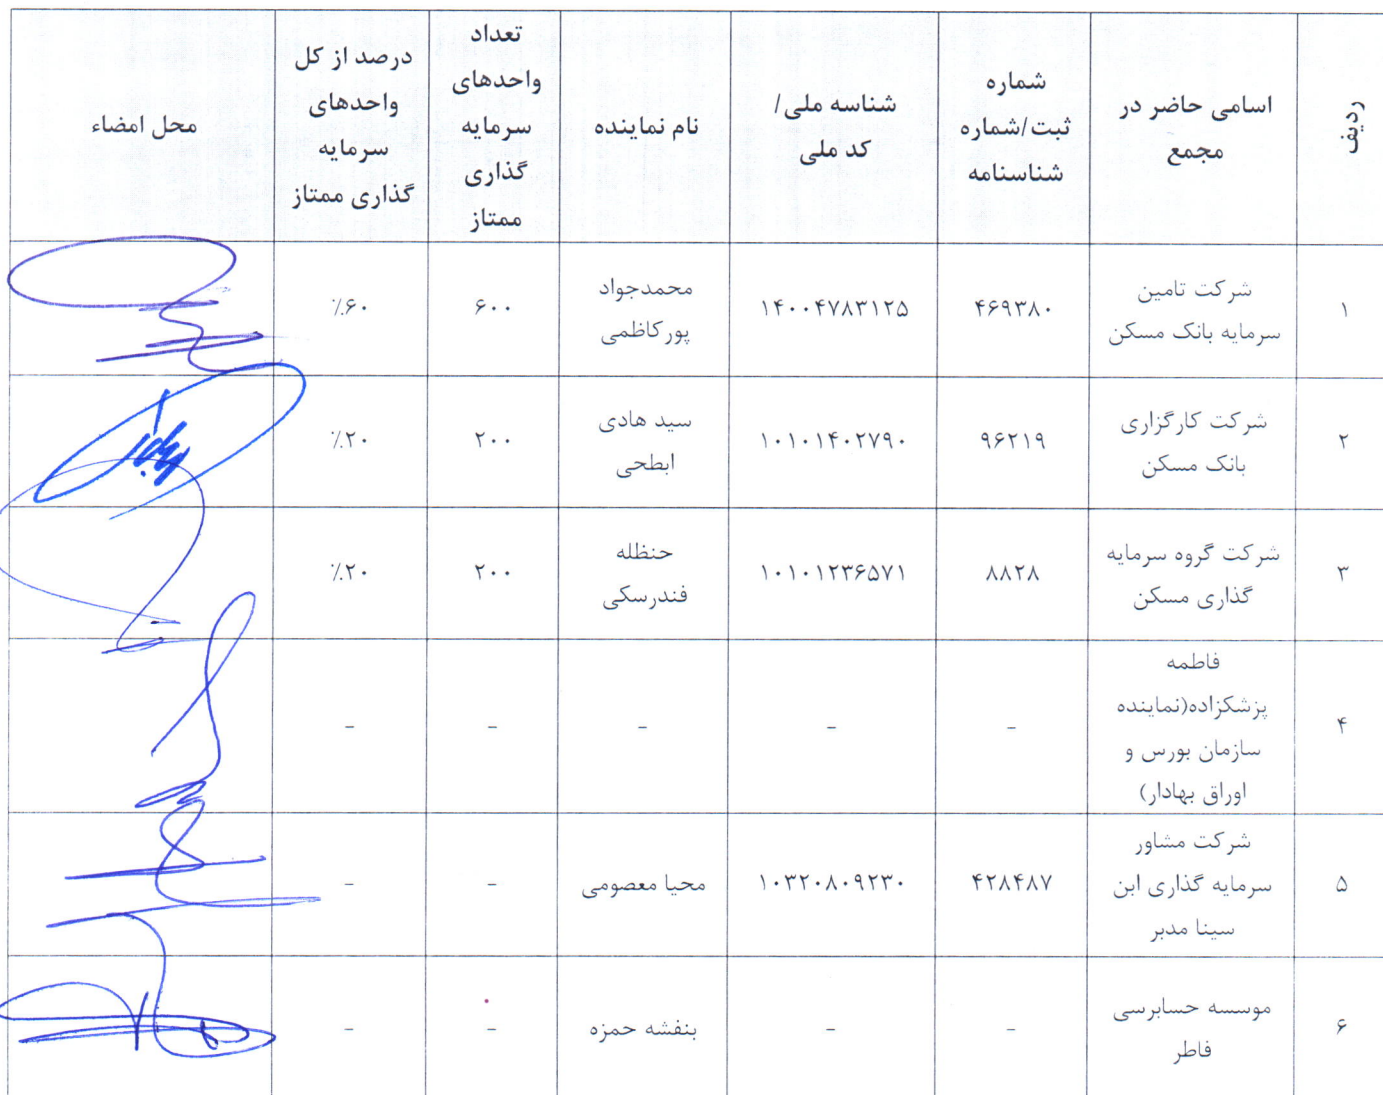 ردیف
اسامی حاضر در
مجمع
شماره
ثبت/شماره
شناسنامه
شناسه ملی/
کد ملی
نام نماینده
تعداد
واحدهای
سرمایه
گذاری
ممتاز
درصد از کل
واحدهای
سرمایه
گذاری ممتاز
محل امضاء
۱
شرکت تامین
سرمایه بانک مسکن
۴۶۹۳۸۰
۱۴۰۰۴۷۸۳۱۲۵
محمدجواد
پورکاظمی
۶۰۰
٪۶۰
۲
شرکت کارگزاری
بانک مسکن
۹۶۲۱۹
۱۰۱۰۱۴۰۲۷۹۰
سید هادی
ابطحی
۲۰۰
٪۲۰
۳
شرکت گروه سرمایه
گذاری مسکن
۸۸۲۸
۱۰۱۰۱۲۳۶۵۷۱
حنظله
فندرسکی
۲۰۰
٪۲۰
۴
فاطمه
پزشکزاده(نماینده
سازمان بورس و
اوراق بهادار)
-
-
-
-
-
۵
شرکت مشاور
سرمایه گذاری ابن
سینا مدبر
۴۲۸۴۸۷
۱۰۳۲۰۸۰۹۲۳۰
محیا معصومی
-
-
۶
موسسه حسابرسی
فاطر
-
-
بنفشه حمزه
-
-